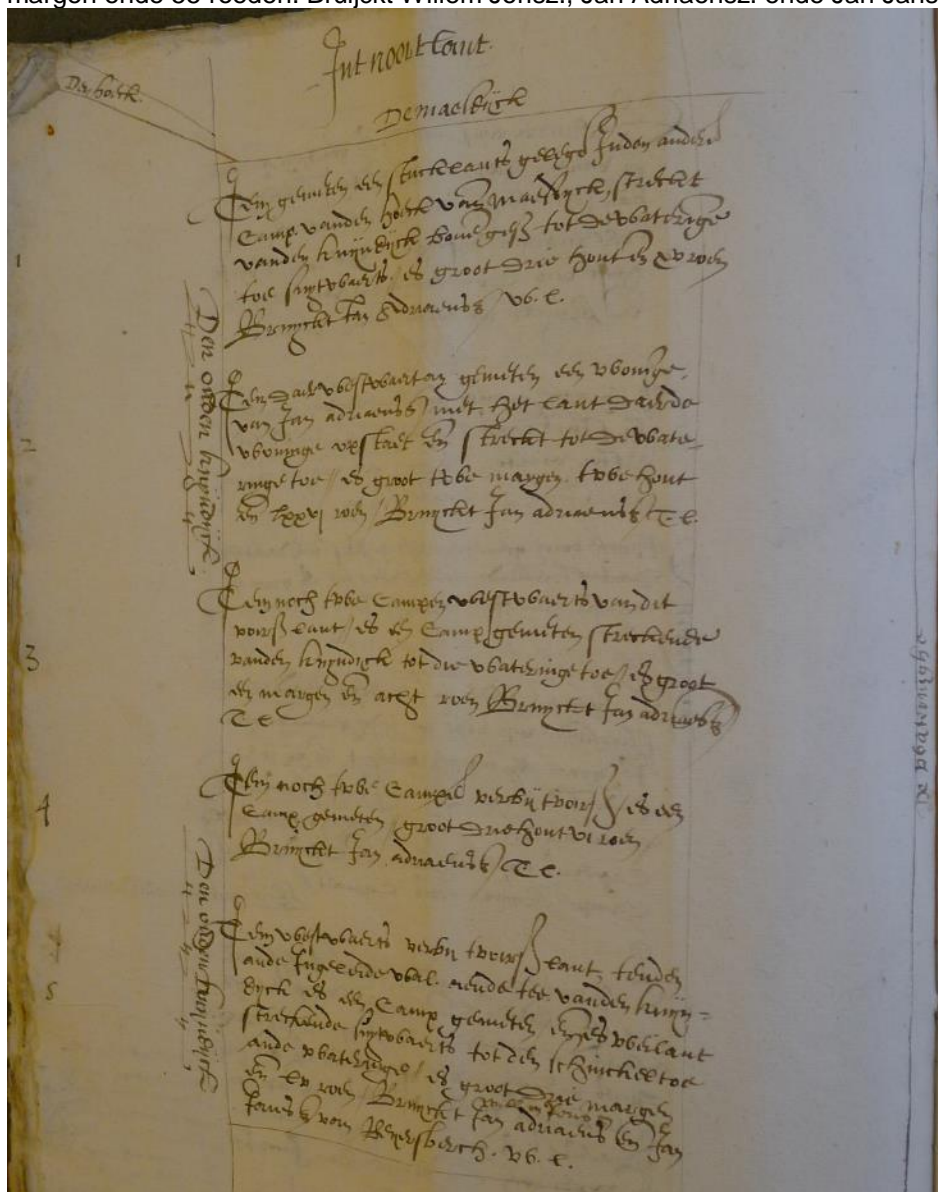 margen ende 55 roeden. Bruijckt Willem Jonsz., Jan Adriaensz. ende Jan Jans
Int noort lant.
Den hoeck.
Demaeldijck
Item gemeten een stuck lants gelegen Inden anderen
Camp vanden hoeck van maeldijck, streckt
vanden kruijndijck tot de wateringe
toe suijtwaerts, es groot drie hont en xv roen
Bruijckt Jan Adriaensz
1
Den ouden kruijndijck
Item daer westwaert aen gemeten een woninge
van Jan adriaensz met het lant daer de
woninge op staet en streckt tot de wate
ringe toe, es groot twe margen twe hont
en lxxvj roen, Bruijckt Jan adriaensz T.l.
2
Item noch twe Campen westwaerts van dit
voirs lant, es een Camp gemeten streckende
vanden kruijndijck tot die wateringe toe, es groot
een margen en acht roen Bruijckt Jan adriaensz
T l
3
de wateringhe
Item noch twe Campen verbij tvoirs, es een
Camp gemeten groot drie hont vi roen
Bruijckt Jan adriaensz T l.
4
Den ouden kruijndijck
Item westwaerts verbij tvoirs lant, tenden
ande Ingeleide wal vanden kruijn=
dijck es een Camp gemeten
streckende suijtwaerts tot den schinckel toe
ande wateringe, es groot drie margen
en lv roen, Bruijckt Jan adriaensz en Jan
Jansz van
5